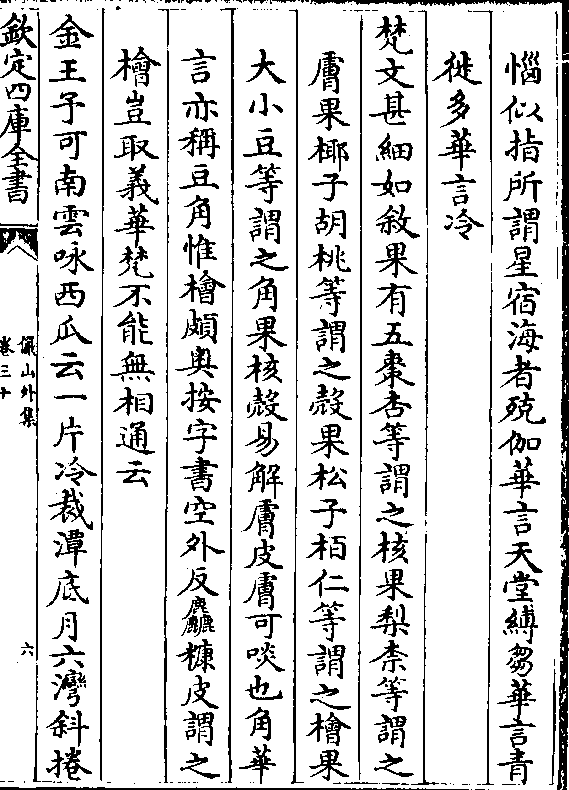 惱似指所謂星宿海者殑伽華言天堂縛芻華言青
徙多華言冷
梵文甚細如敘果有五棗杏等謂之核果梨柰等謂之
膚果椰子胡桃等謂之殼果松子栢仁等謂之檜果
大小豆等謂之角果核殼易解膚皮膚可啖也角華
言亦稱豆角惟檜頗奥按字書空外反麤糠皮謂之
檜豈取義華梵不能無相通云
金王子可南雲咏西瓜云一片冷裁潭底月六灣斜捲
欽定四庫全書
儼山外集
卷三十
六